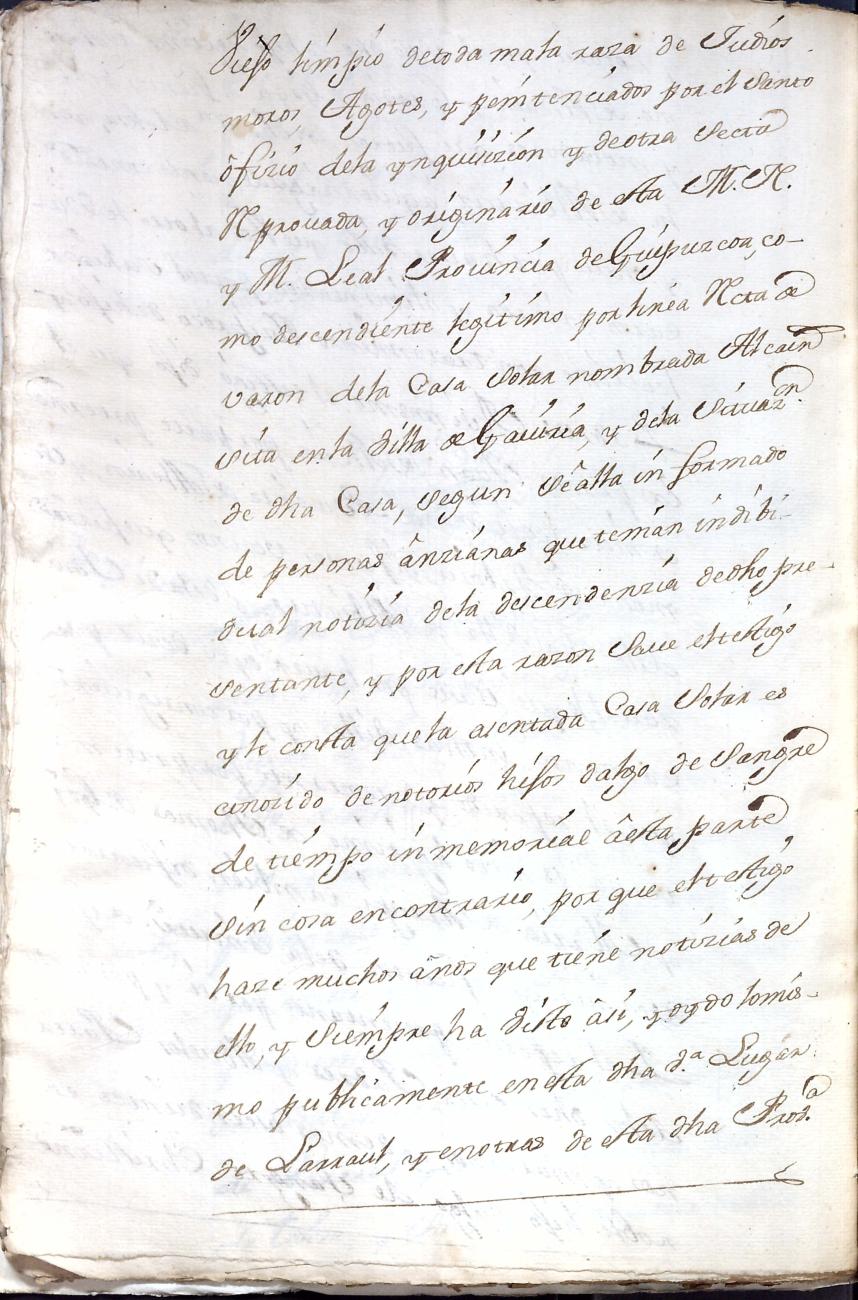 Viejo limpio de toda mala raza de Judios
moros, Agotes, y penitenciados por el santo
ôfizio dela ynquisizion y de otra secta
Rprouada, y originario de esta M. N.
y M. Leal Prouincia de Guipuzcoa, co-
mo descendiente legitimo por linea Recta de
varon dela Casa solar nombrada Alcain
sita en la villa de Gauiria, y dela situazn.
de dha Casa, segun se âlla informado
de personas ânzianas que tenian indibi-
dual notizia dela descendenzia de dho pre-
sentante, y por esta razon saue el testigo
y le consta que la asentada Casa solar es
conozido de notorios hijos dalgo de sangre
de tiempo inmemorial âesta parte
sin cosa en contrario, por que el testigo
haze muchos âños que tiene notizias de
ello, y siempre ha visto âsi, y oydo lo mis-
mo publicamente en esta dha Lugar
de Larraul, y en otras de esta dha Proua.